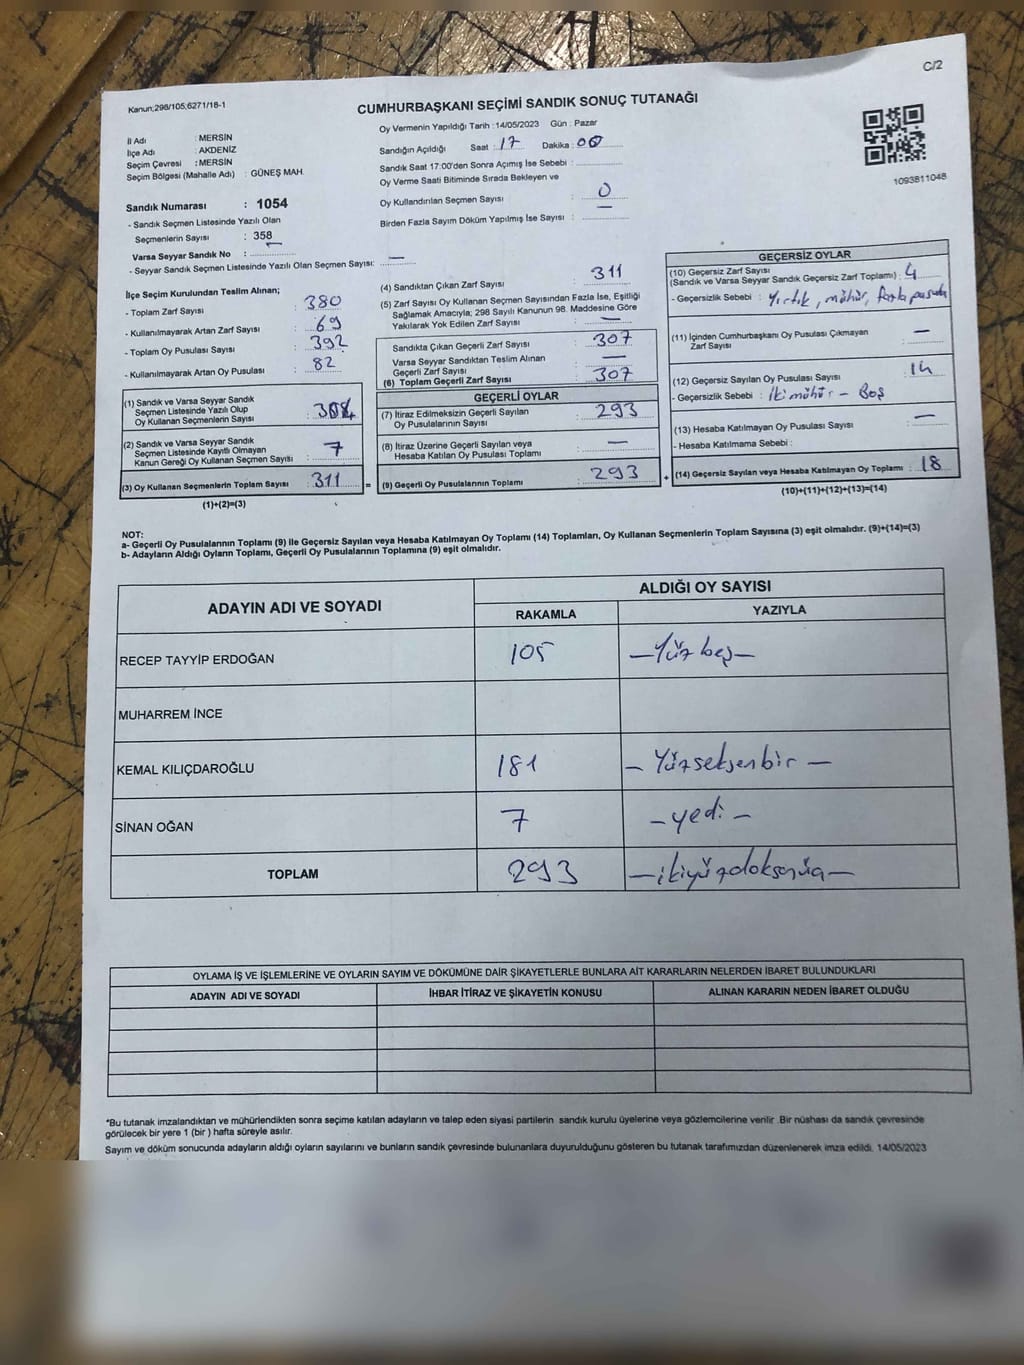 Kanun;298/105;6271/18-1
C/2
CUMHURBAŞKANI SEÇİMİ SANDIK SONUÇ TUTANAĞI
İl Adı : MERSİN
İlçe Adı : AKDENİZ
Seçim Çevresi : MERSİN
Seçim Bölgesi (Mahalle Adı) : GÜNEŞ MAH.
Sandık Numarası : 1054
- Sandık Seçmen Listesinde Yazılı Olan
Seçmenlerin Sayısı : 358
Varsa Seyyar Sandık No :
- Seyyar Sandık Seçmen Listesinde Yazılı Olan Seçmen Sayısı: —
Oy Vermenin Yapıldığı Tarih : 14/05/2023 Gün : Pazar
Sandığın Açıldığı Saat : 17 Dakika : 00
Sandık Saat 17:00'den Sonra Açımış İse Sebebi :
Oy Verme Saati Bitiminde Sırada Bekleyen ve
Oy Kullandırılan Seçmen Sayısı : 0
Birden Fazla Sayım Döküm Yapılmış İse Sayısı : —
1093811048
İlçe Seçim Kurulundan Teslim Alınan;
- Toplam Zarf Sayısı : 380
- Kullanılmayarak Artan Zarf Sayısı : 69
- Toplam Oy Pusulası Sayısı : 392
- Kullanılmayarak Artan Oy Pusulası : 82
(1) Sandık ve Varsa Seyyar Sandık
Seçmen Listesinde Yazılı Olup
Oy Kullanan Seçmenlerin Sayısı :
(2) Sandık ve Varsa Seyyar Sandık
Seçmen Listesinde Kayıtlı Olmayan
Kanun Gereği Oy Kullanan Seçmen Sayısı : 7
(3) Oy Kullanan Seçmenlerin Toplam Sayısı : 311
(1)+(2)=(3)
(4) Sandıktan Çıkan Zarf Sayısı : 311
(5) Zarf Sayısı Oy Kullanan Seçmen Sayısından Fazla İse, Eşitliği
Sağlamak Amacıyla; 298 Sayılı Kanunun 98. Maddesine Göre
Yakılarak Yok Edilen Zarf Sayısı : —
Sandıkta Çıkan Geçerli Zarf Sayısı : 307
Varsa Seyyar Sandıktan Teslim Alınan
Geçerli Zarf Sayısı : —
(6) Toplam Geçerli Zarf Sayısı : 307
GEÇERLİ OYLAR
(7) İtiraz Edilmeksizin Geçerli Sayılan
Oy Pusulalarının Sayısı : 293
(8) İtiraz Üzerine Geçerli Sayılan veya
Hesaba Katılan Oy Pusulası Toplamı : —
(9) Geçerli Oy Pusulalarının Toplamı : 293
GEÇERSİZ OYLAR
(10) Geçersiz Zarf Sayısı
(Sandık ve Varsa Seyyar Sandık Geçersiz Zarf Toplamı) : 4
- Geçersizlik Sebebi : Yırtık, mühür, fazla pusula
(11) İçinden Cumhurbaşkanı Oy Pusulası Çıkmayan
Zarf Sayısı : —
(12) Geçersiz Sayılan Oy Pusulası Sayısı : 14
- Geçersizlik Sebebi : İki mühür – Boş
(13) Hesaba Katılmayan Oy Pusulası Sayısı : —
- Hesaba Katılmama Sebebi :
(14) Geçersiz Sayılan veya Hesaba Katılmayan Oy Toplamı : 18
(10)+(11)+(12)+(13)=(14)
NOT:
a- Geçerli Oy Pusulalarının Toplamı (9) ile Geçersiz Sayılan veya Hesaba Katılmayan Oy Toplamı (14) Toplamları, Oy Kullanan Seçmenlerin Toplam Sayısına (3) eşit olmalıdır. (9)+(14)=(3)
b- Adayların Aldığı Oyların Toplamı, Geçerli Oy Pusulalarının Toplamına (9) eşit olmalıdır.
ADAYIN ADI VE SOYADI ALDIĞI OY SAYISI
RAKAMLA YAZIYLA
RECEP TAYYİP ERDOĞAN 105 —Yüz beş—
MUHARREM İNCE
KEMAL KILIÇDAROĞLU 181 — Yüzseksenbir —
SİNAN OĞAN 7 —yedi—
TOPLAM 293 —ikiyüzdoksanüç—
OYLAMA İŞ VE İŞLEMLERİNE VE OYLARIN SAYIM VE DÖKÜMÜNE DAİR ŞİKAYETLERLE BUNLARA AİT KARARLARIN NELERDEN İBARET BULUNDUKLARI
ADAYIN ADI VE SOYADI İHBAR İTİRAZ VE ŞİKAYETİN KONUSU ALINAN KARARIN NEDEN İBARET OLDUĞU
*Bu tutanak imzalandıktan ve mühürlendikten sonra seçime katılan adayların ve talep eden siyasi partilerin sandık kurulu üyelerine veya gözlemcilerine verilir. Bir nüshası da sandık çevresinde
görülecek bir yere 1 (bir ) hafta süreyle asılır.
Sayım ve döküm sonucunda adayların aldığı oyların sayılarını ve bunların sandık çevresinde bulunanlara duyurulduğunu gösteren bu tutanak tarafımızdan düzenlenerek imza edildi. 14/05/2023